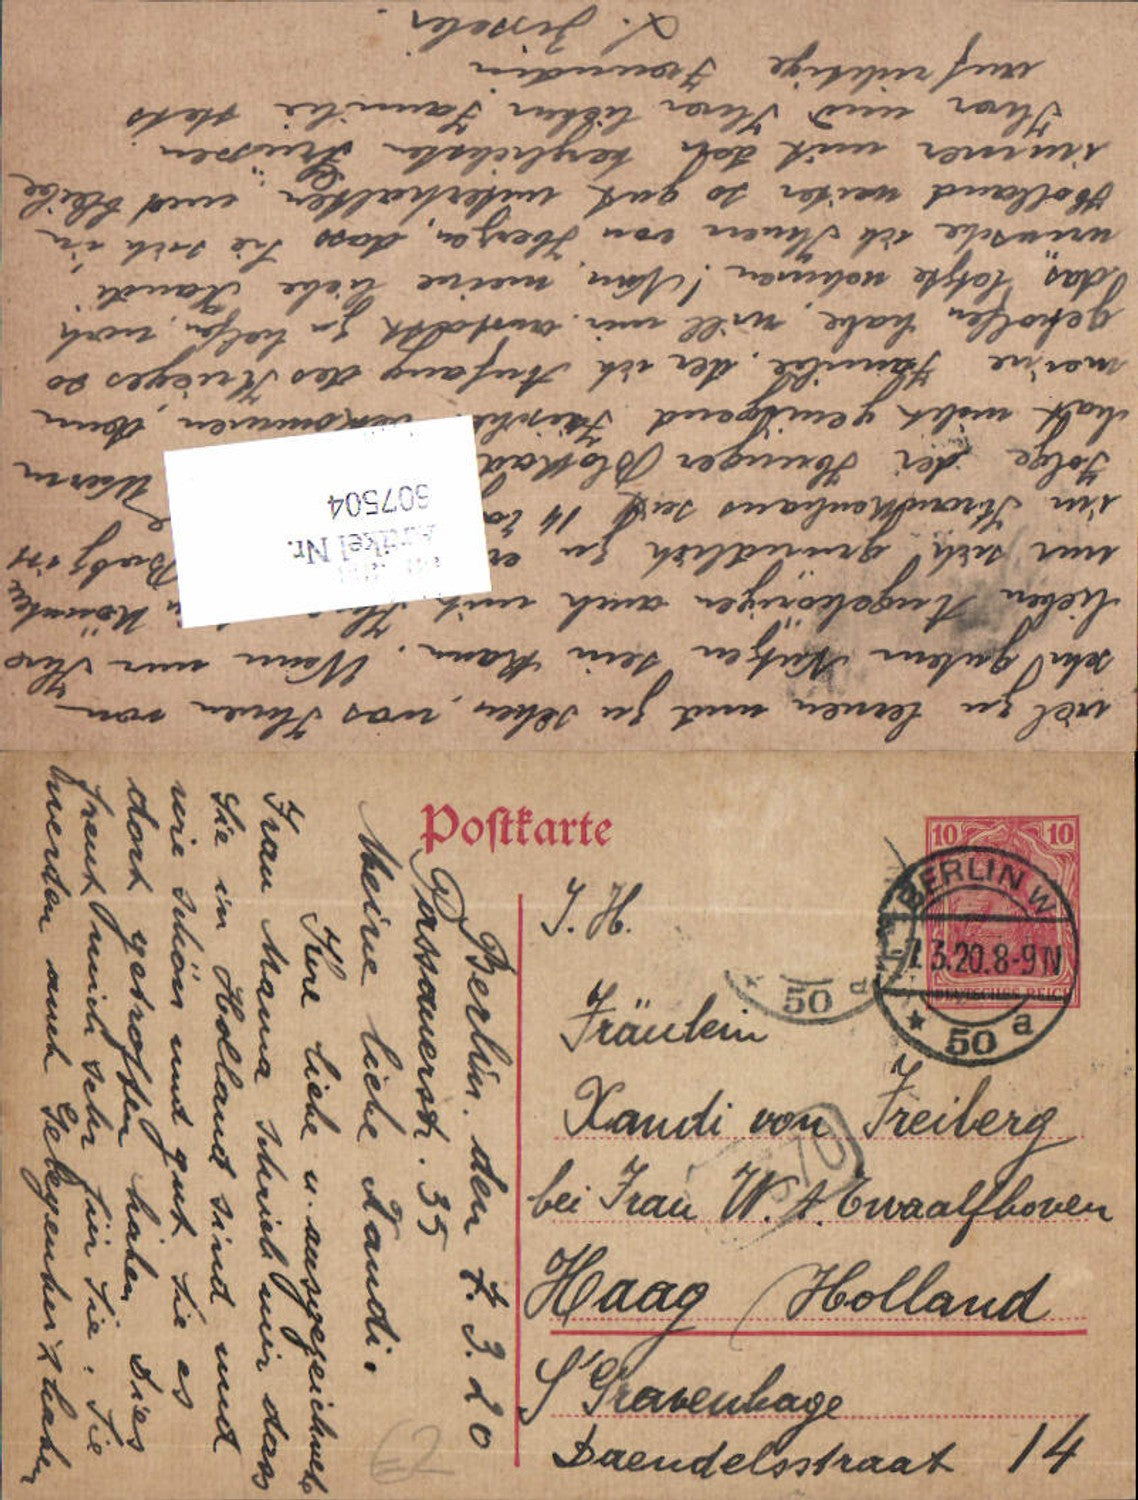 Postkarte
10 10
DEUTSCHES REICH
BERLIN W
-7.3.20.8-9N
* 50 a
50 a
J. H.
Fräulein
Xandi von Freiberg
bei Frau W. A. Ewaalfhoven
Haag Holland
S'Gravenhage
Daendelsstraat 14
Berlin. den 7. 3. 20
Passauerstr. 35
Meine liebe Xandi.
Ihre liebe u. ausgezeichnete
Frau Mama schrieb mir dass
Sie in Holland sind und
wie schön und gut Sie es
dort getroffen haben. Dies
freut mich sehr für Sie. Sie
werden auch Gelegenheit haben
viel zu lernen und zu sehen, was Ihnen von
sehr gutem Nutzen sein kann. Wenn nur Ihre
lieben Angehörigen auch mit könnten
um sich gründlich zu Baby ist
im Krankenhaus seit 14
Folge der Hunger Blokad Wurm
hat nicht genügend bekommen, denn
meine Familie, der ich Anfang des Krieges so
geholfen habe, will mir anstatt zu helfen, noch
"das" letzte nehmen! Nun, meine liebe Xandi
wünsche ich Ihnen von Herzen, dass Sie sich in
Holland weiter so gut unterhalten und bleibe
immer mit den herzlichsten Grüssen
Ihre und Ihrer lieben Familie stets
aufrichtige Freundin
Artikel Nr.
607504
£2